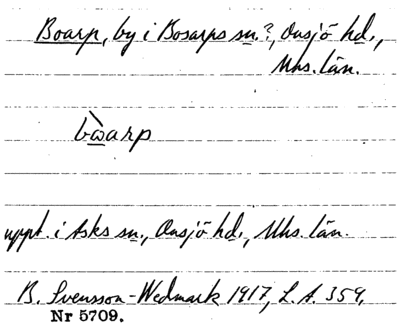 Boarp, by i Bosarps sn?, Onsjö hd.,
Mhs. län.
bòarp
uppt. i Asks sn., Onsjö hd., Mhs. län.
B. Svensson-Wedmark 1917, L.A. 359.
Nr 5709.